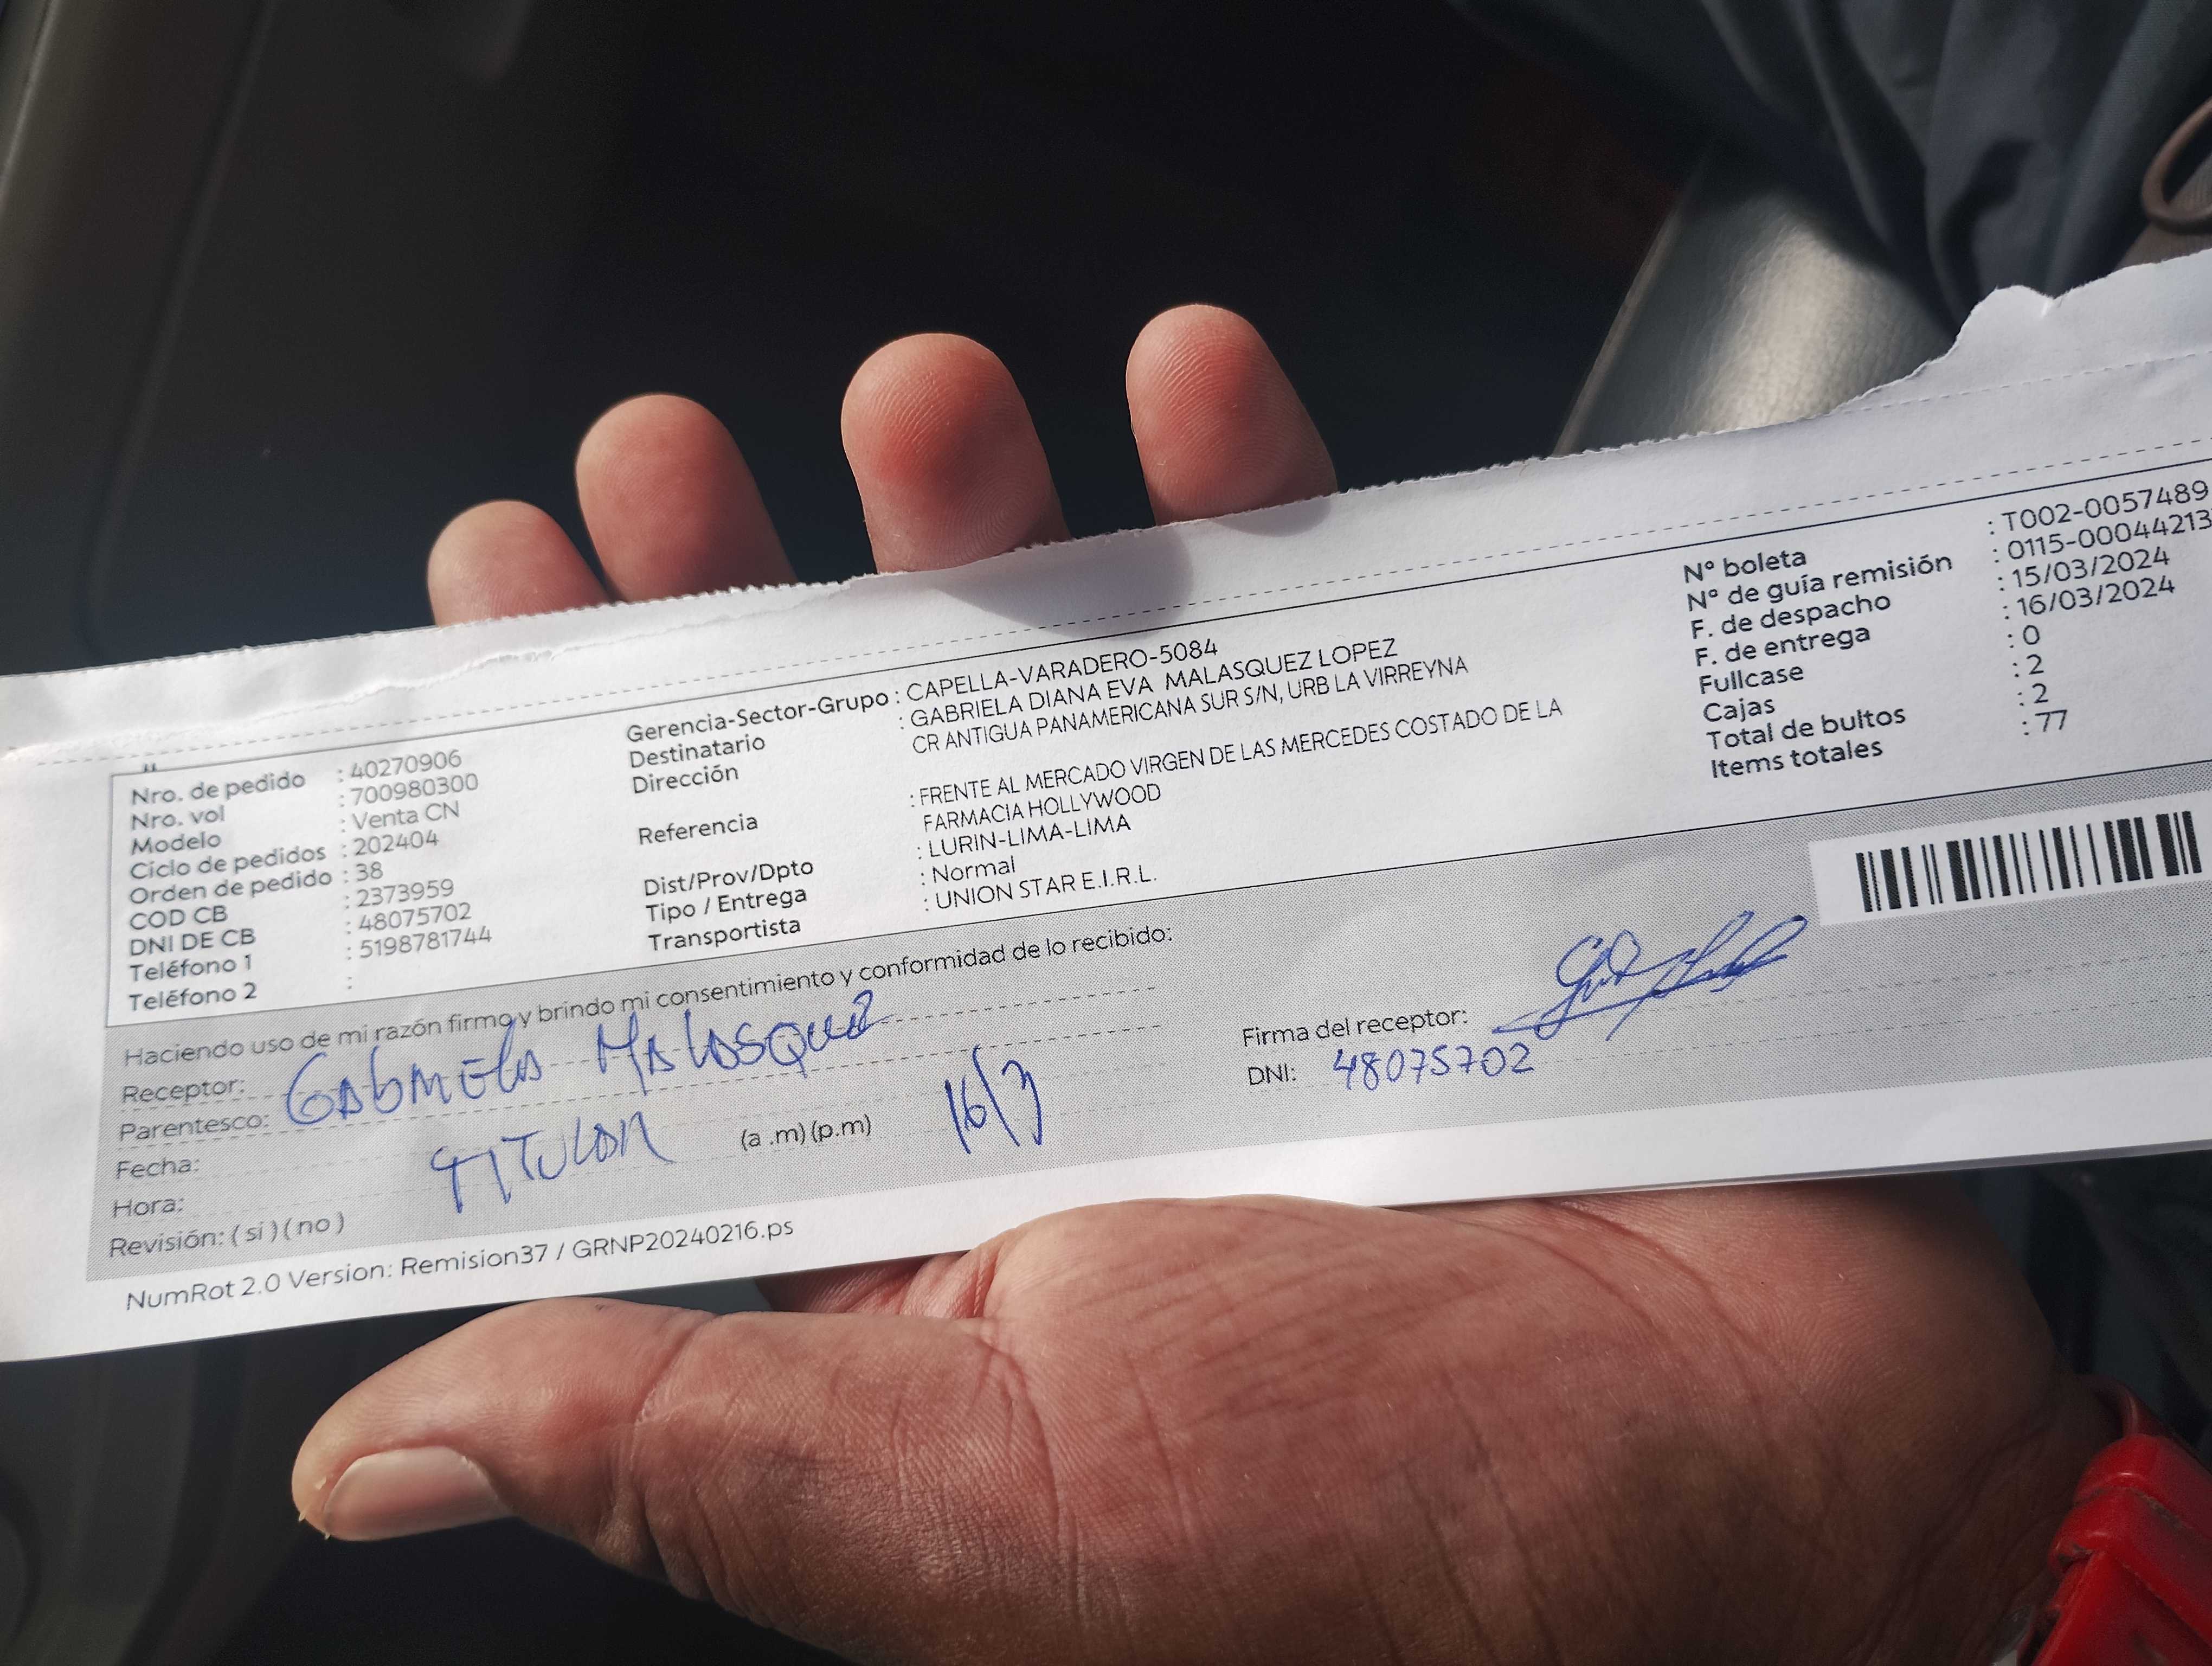 Nro. de pedido : 40270906
Nro. vol : 700980300
Modelo : Venta CN
Ciclo de pedidos : 202404
Orden de pedido : 38
COD CB : 2373959
DNI DE CB : 48075702
Teléfono 1 : 5198781744
Teléfono 2 :
Gerencia-Sector-Grupo : CAPELLA-VARADERO-5084
Destinatario : GABRIELA DIANA EVA MALASQUEZ LOPEZ
Dirección CR ANTIGUA PANAMERICANA SUR S/N, URB LA VIRREYNA
Referencia : FRENTE AL MERCADO VIRGEN DE LAS MERCEDES COSTADO DE LA
FARMACIA HOLLYWOOD
Dist/Prov/Dpto : LURIN-LIMA-LIMA
Tipo / Entrega : Normal
Transportista : UNION STAR E.I.R.L.
Nº boleta : T002-0057489
Nº de guía remisión : 0115-00044213
F. de despacho : 15/03/2024
F. de entrega : 16/03/2024
Fullcase : 0
Cajas : 2
Total de bultos : 2
Items totales : 77
Haciendo uso de mi razón firmo y brindo mi consentimiento y conformidad de lo recibido:
Receptor: GABRIELA MALASQUEZ
Parentesco:
Fecha: TITULAR (a .m) (p.m) 16/3
Hora:
Revisión: ( si ) ( no )
Firma del receptor:
DNI: 48075702
NumRot 2.0 Version: Remision37 / GRNP20240216.ps